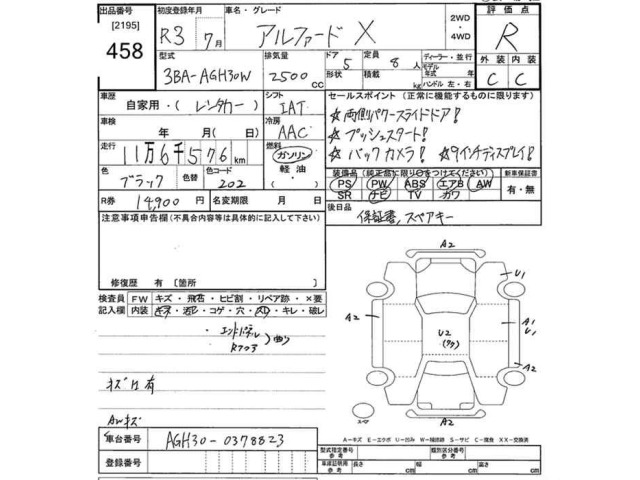 出品番号 初度登録年月 車名・グレード 2WD・4WD 評価点
[2195]
458
R3年7月 アルファードX R
型式 排気量 ドア 定員 ディーラー・並行 外装 内装
3BA-AGH30W 2500CC 5 8人 モデル年式 年式
形状 積載 kg ハンドル 左・右 C C
車歴 シフト セールスポイント (正常に機能するものに限ります)
自家用・(レンタカー) IAT ☆両側パワースライドドア!
車検 冷房 ☆プッシュスタート!
年 月(日) AAC ☆バックカメラ! ☆9インチディスプレイ!
走行 燃料
11万6千576km ガソリン
軽油・
装備品 (純正品に限り○をつけてください) 新車保証書
色 色替 色コード
ブラック 202
PS PW ABS エアB AW 有・無
SR ナビ TV カワ
R券 14,900 名変期限 月 日
後日品 保証書,スペアキー
注意事項申告欄(不具合内容等は具体的に記入して下さい)
修復歴 有 [箇所 ]
検査員記入欄 FW キズ・飛石・ヒビ割・リペア跡・×要
内装 キズ・汚レ・コゲ・穴・スリ・キレ・破レ
エンドパネル
Rフロア
曲り
キズ凹有
AWキズ
A2
U1
A2
U2
A1
U1
A2
A2
A-キズ E-エクボ U-凹み W-補修跡 S-サビ C-腐食 XX-交換済
車台番号 AGH30-0378823
登録番号
型式指定番号 参考 類別区分番号 参考
車庫証明用 参考 長さ cm 幅 cm 高さ cm